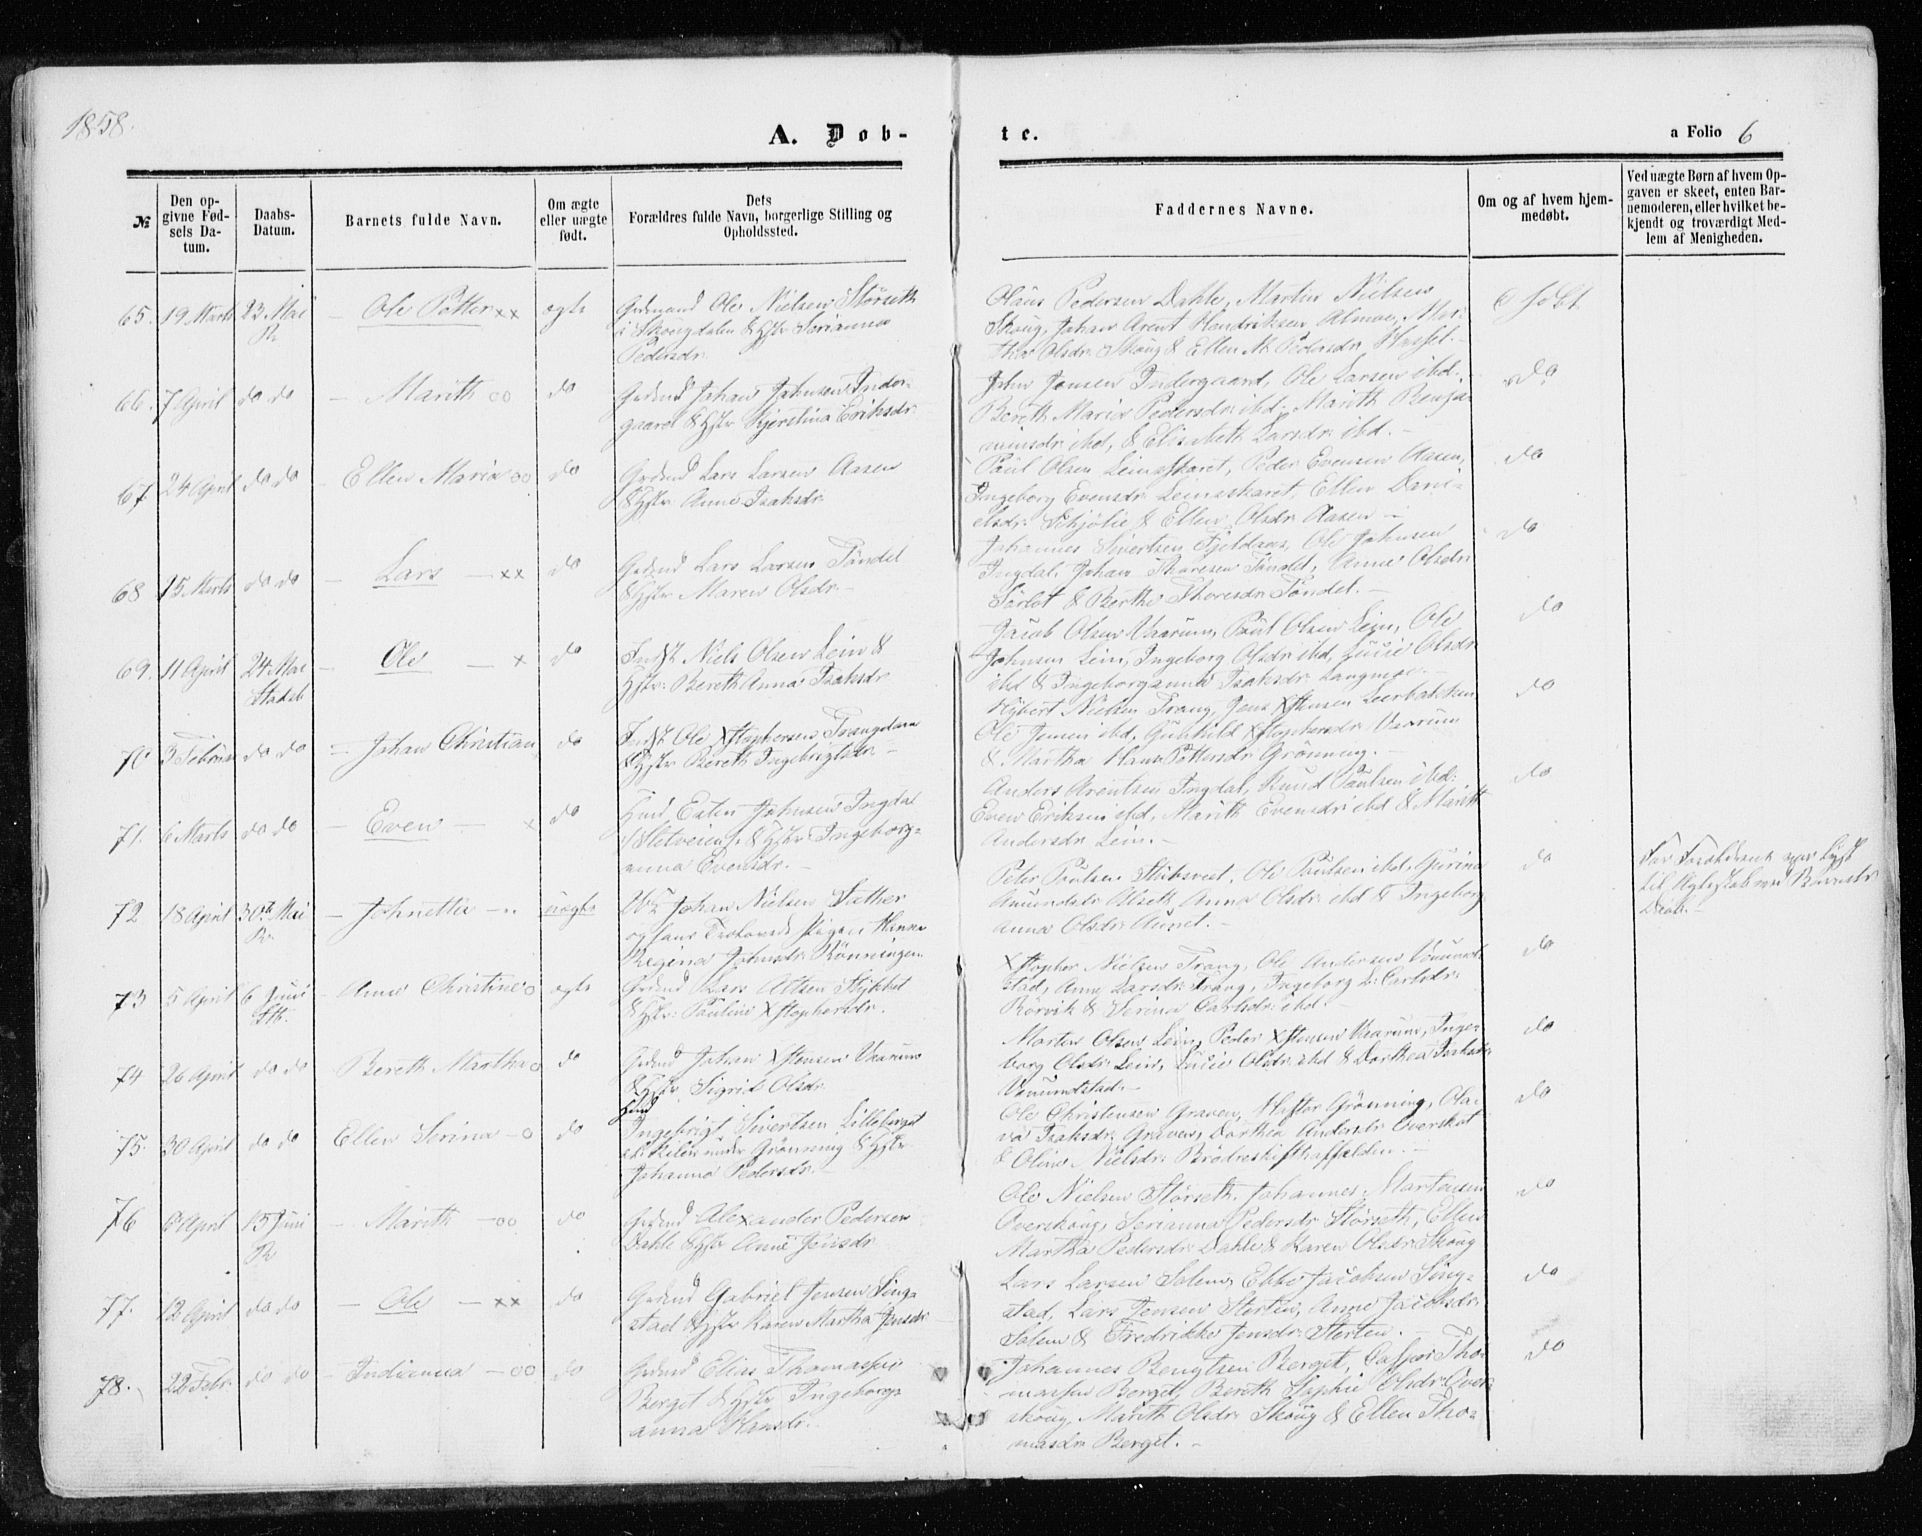 1858.
A. Døb-
te.
a Folio 6
№
Den op-
givne Fød-
sels Da-
tum.
Daabs-
Datum.
Barnets fulde Navn.
Om ægte
eller uægte
født.
Dets
Forældres fulde Navn, borgerlige Stilling og
Opholdssted.
Faddernes Navne.
Om og af hvem hjem-
medøbt.
Ved uægte Børn af hvem Op-
gaven er skeet, enten Bar-
nemoderen, eller hvilket be-
kjendt og troværdigt Med-
lem af Menigheden.
65. 19 Marts 23 Mai
R
- Ole Petter xx
ægte
Gaardmand Ole Nielsen Størseth
i Skougdalen & Hstr Serianna
Pedersdr.
Olaus Pedersen Dahle, Martin Nielsen
Skoug, Johan Arent Hendriksen Almoe, Mar-
tha Olsdr: Skoug & Ellen M. Pedersdr: Hassel.-
66. 7 April do do
- Marith oo
do
Grdmd Johan Johnsen Inder-
gaard & Hstr Kjerstina Eriksdr
John Jonsen Indergaard, Ole Larsen ibd.
Bereth Maria Pedersdr: ibd. Marith Benja-
minsdr: ibd, & Elisabeth Larsdr: ibd.-
do
67 24 April do do
- Ellen Maria oo
do
Grdmd Lars Larsen Aasen
& Hstr: Anne Isaksdr
Paul Olsen Leinsskaret, Peder Evensen Aasen,
Ingeborg Evensdr: Leinsskaret, Ellen Dani-
elsdr: Schjølie & Ellen Olsdr: Aasen -
do
68 15 Marts do do
- Lars - xx
do
Grdmd Lars Larsen Tøndel
& Hstr Maren Olsdr:-
Johannes Sivertsen Fjeldnes, Ole Johnsen
Ingdal, Johan Thoresen Tøndel, Anne Olsdr:
Sørlet & Berthe Thoresdr: Tøndel.-
do
69. 11 April 24 Mai
Stadsb
- Ole - x
do
Indst Niels Olsen Lein &
Hstr: Bereth Anna Isaksdr
Jacob Olsen Vaarum, Paul Olsen Lein, Ole
Johnsen Lein, Ingeborg Olsdr: ibd, Lucie Olsdr
ibd & Ingeborganna Isaksdr: Langmoe.-
do
70 3 Februar do do
- Johan Christian
do
Indst Ole Xstophersen Trangdara
& Hstr Bereth Ingebrigtsdr:-
Hybert Nielsen Trang, Jens Xstensen Leerbakken
Ole Jensen ibd, Gunhild Xstophersdr: Vaarum
& Martha Hans Pettersdr: Grønning.-
do
71. 6 Marts do do
- Even - x
do
Johnsen Ingdal
& Hstr: Ingeborg-
anna Evensdr.-
Anders Arentsen Ingdal, Knud Paulsen ibd:
Even Eriksen ibd, Marith Evensdr: ibd & Marith
Andersdr: Lein.-
do
72 18 April 30te Mai
R.
- Johnetta -
uægte
Johan Nielsen Sather
og hans Trolovede Pigen Hanna
Regina Johnsdr: Rønningen
Peter Paulsen Stubsveet, Ole Paulsen ibd, Gurina
Amundsdr: Alseth, Anna Olsdr: ibd & Ingeborg
anna Olsdr: Aunet.-
do
73 5 April 6 Juni
- Anne Christine o
ægte
Grdmd Lars Altsen Stykket
& Hstr: Pauline Xstophersdr.
Xstopher Nielsen Trang, Ole Andersen Vemund-
stad, Anne Larsdr: Trang, Ingeborg L: Carlsdr:
Rørvik & Serina Carlsdr: ibd.-
do
74 26 April do do
- Bereth Martha o
do
Grdmd Johan Xstensen Vaarum
& Hstr Sigrid Olsdr:
Morten Olsen Lein, Peder Xstensen Vaarum, Inge-
borg Olsdr: Lein, Lucie Olsdr: ibd & Dorthea Isaksdr:
Vemundstad.-
do
75. 30 April do do
Ellen Serina - o
do
Huusmd
Ingebrigt Sivertsen Lilleberget
under Grønning & Hstr
Johanna Pedersdr.
Ole Christensen Graven, Haftor Grønning, Ola-
va Isaksdr: Graven, Dorthea Andersdr: Overskot
& Oline Nielsdr: Brødreskifthaffelden.-
do
76 6 April 15 Juni
R
- Marith - oo
do
Grdmd Alexander Pedersen
Dahle & Hstr Anne Jensdr:
Ole Nielsen Størseth, Johannes Martensen
Overskoug, Serianna Pedersdr: Størseth, Ellen
Martha Pedersdr: Dahle & Karen Olsdr: Skoug
do
77. 12 April do do
- Ole - xx
do
Grdmd Gabriel Jensen Sing-
stad & Hstr Karen Martha Jensdr
Lars Larsen Salem, Ebbe Jacobsen Sing-
stad, Lars Jensen Sterten, Anne Jacobsdr:
Salem & Fredrikke Jensdr: Sterten.
do
78. 22 Febr. do do
- Indianna - oo
do
Grdmd Elias Thomassen
Berget & Hstr Ingeborg-
anna Hansdr:
Johannes Bengtsen Berget, Casper Tho-
massen Berget, Bereth Sophie Olsdr: Over-
skoug, Marith Olsdr: Skoug & Ellen Tho-
masdr: Berget.-
do